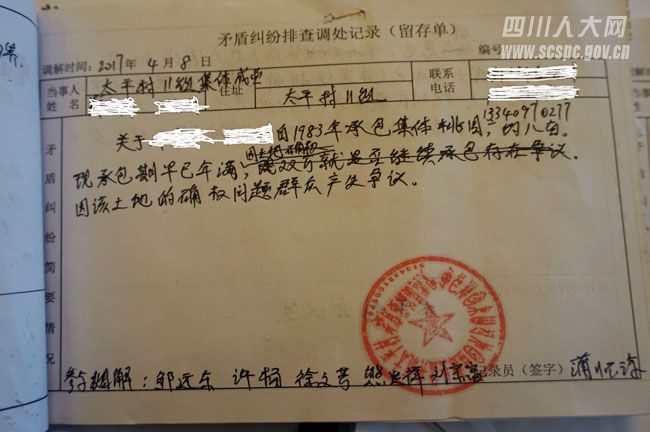 四川人大网
www.scspc.gov.cn
矛盾纠纷排查调处记录（留存单）
调解时间：2017年4月8日
编号
当事人姓名
太平村11组集体成员
住址
太平村11组
联系电话
13340970277
关于
自1983年承包集体桃园，约八亩。
因土地确权
现承包期早已年满，双方就是否继续承包存在争议。
因该土地的确权问题群众产生争议。
矛盾纠纷简要情况
参与调解：邹远东 许杨 徐文
记录员（签字）